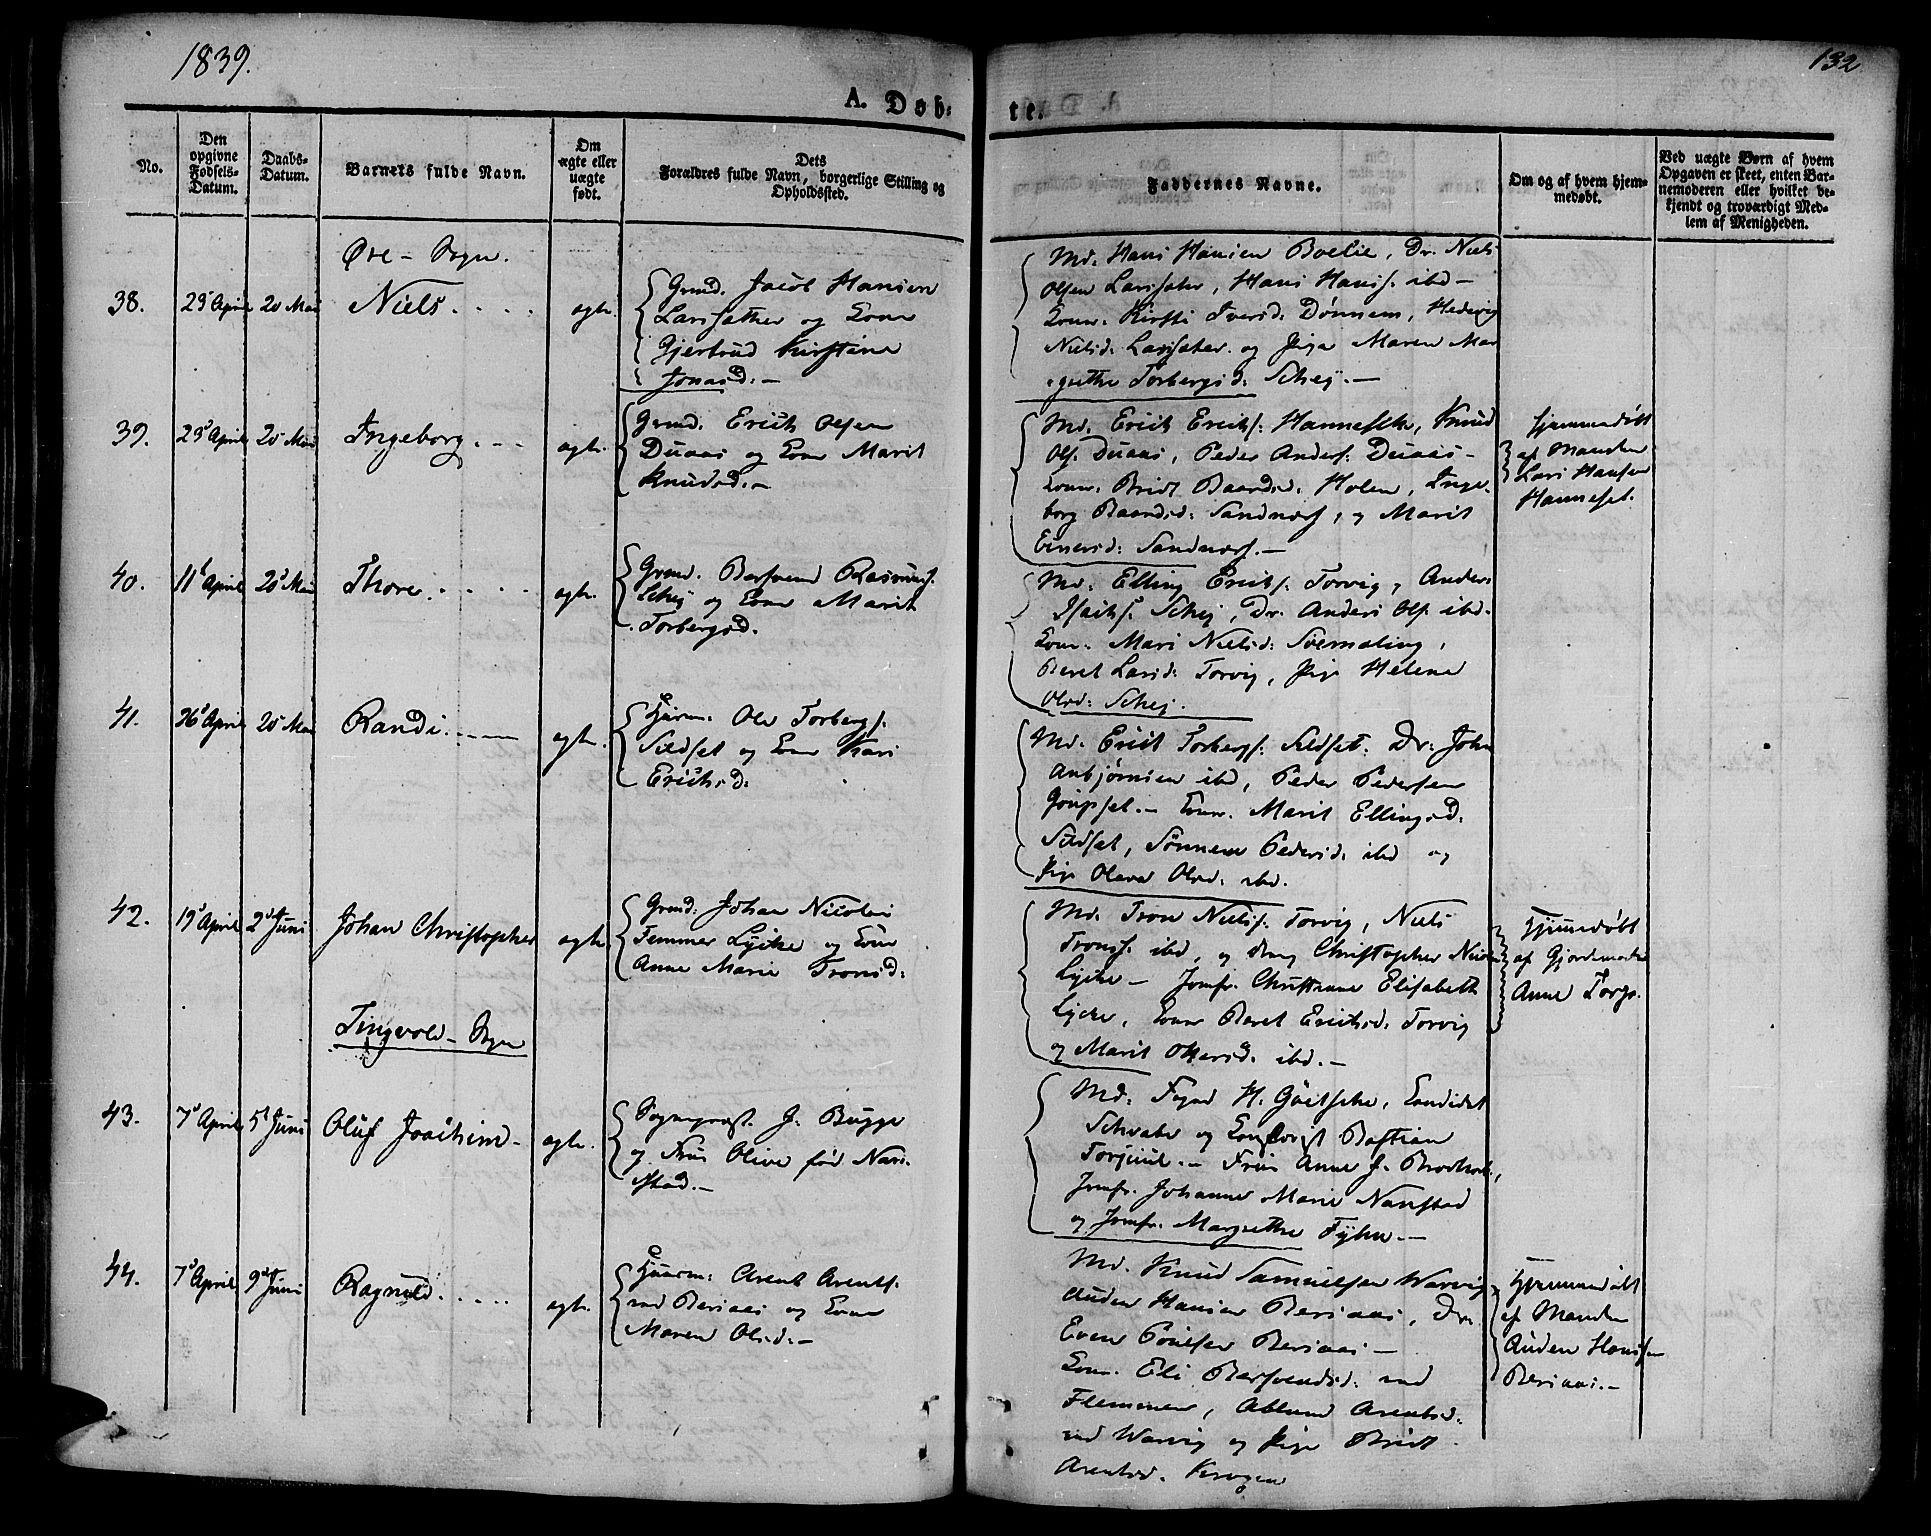 1839.
132
A. Døb-
te.
No.
Den opgivne Fødsels-Datum.
Daabs-Datum.
Barnets fulde Navn.
Om ægte eller uægte født.
Dets Forældres fulde Navn, borgerlige Stilling og Opholdssted.
Faddernes Navne.
Om og af hvem hjem-
medøbt.
Ved uægte Børn af hvem
Opgaven er skeet, enten Bar-
nemoderen eller hvilket be-
kjendt og troværdigt Med-
lem af Menigheden.
Øre - Sogn.
38.
April
Mai
Niels
ægte.
Grmd. Jacob Hansen
Larssæther og Kone
Gjertrud Kirstine
Jonasd: -
Md. Hans Hansen Boelie, Dr. Niels
Olsen Larssæter, Hans Hanss. ibd -
Kone. Kirsti Iversd: Dønnem, Hedevig
Nielsd: Larssæter. og Pige Maren Mar
grethe Torbergsd: Schej. -
39.
April
Mai
Ingeborg
ægte.
Grmd. Erich Olsen
Duaas og Kone Marit
Knudsd. -
Md. Erich Erichs. Hanneseth, Knud
Ols. Duaas, Peder Anders. Duaas -
Kone. Bridt Baardsd. Holen, Inge-
borg Baardsd: Sandnæss, og Marit
Einersd: Sandnæss. -
Hjemmedøbt
af Manden
Lars Hansen
Hanneset.
40.
11 April
Mai
Thore
ægte.
Grmd. Bersvend Rasmuss.
Schej og Kone Marit
Torbergsd.
Md. Elling Erichs. Torvig, Anders
Isachs. Schej, Dr. Anders Ols. ibd.
Kone. Mari Nielsd:
Beret Larsd: Torvig, Pige Helena
Olsd: Schej.
41.
26 April
Mai
Randi
ægte.
Huusm: Ole Torbergs.
Sildset og Kone Kari
Erichsd:
Md. Erich Torbergs. Sildset. Dr. John
Anbjørnsen ibd, Peder Pedersen
Kone. Marit Ellingsd:
Sildset, Pedersd: ibd og
Pige Olava Olsd. ibd.
42.
19 April
2 Juni
Johan Christopher
ægte.
Grmd: Johan Nicolai
Temmer Lycke og Kone
Anne Marie Tronsd:
Md. Tron Niels. Torvig, Niels
Trons. ibd, og dreng Christopher Nicolai
Lycke - Jomfr. Christianne Elisabeth
Lycke, Kone Beret Erichsd: Torvig
og Marit ibd. -
Hjemmedøbt
af Gjordemoder
Anne Torgs.
Tingvold - Sogn
43.
7 April
5 Juni
Oluf Joachim -
ægte.
Sognepræst. J. Bugge
og Frue Olive fød Nan-
stad. -
Md. Foged H. Candidat
Schwabe og Bastian
Frue Anne J.
Jomfr. Johanne Marie Nanstad
og Jomfr. Margrethe Fyhn. -
44.
7 April
9 Juni
Ragnild
ægte.
Huusm: Arent Arents.
ved Bersaas og Kone
Maren Olsd: -
Md. Knud Samuelsen Warvig
Auden Hansen Bersaas, Dr.
Even Bersaas -
Kone. Eli Bersvendsd: ved
Flemmen, Arentsd:
ved Warvig og Pige Bridt
Arentsd.
Hjemmedøbt
af Manden
Auden Hanssen
Bersaas. -